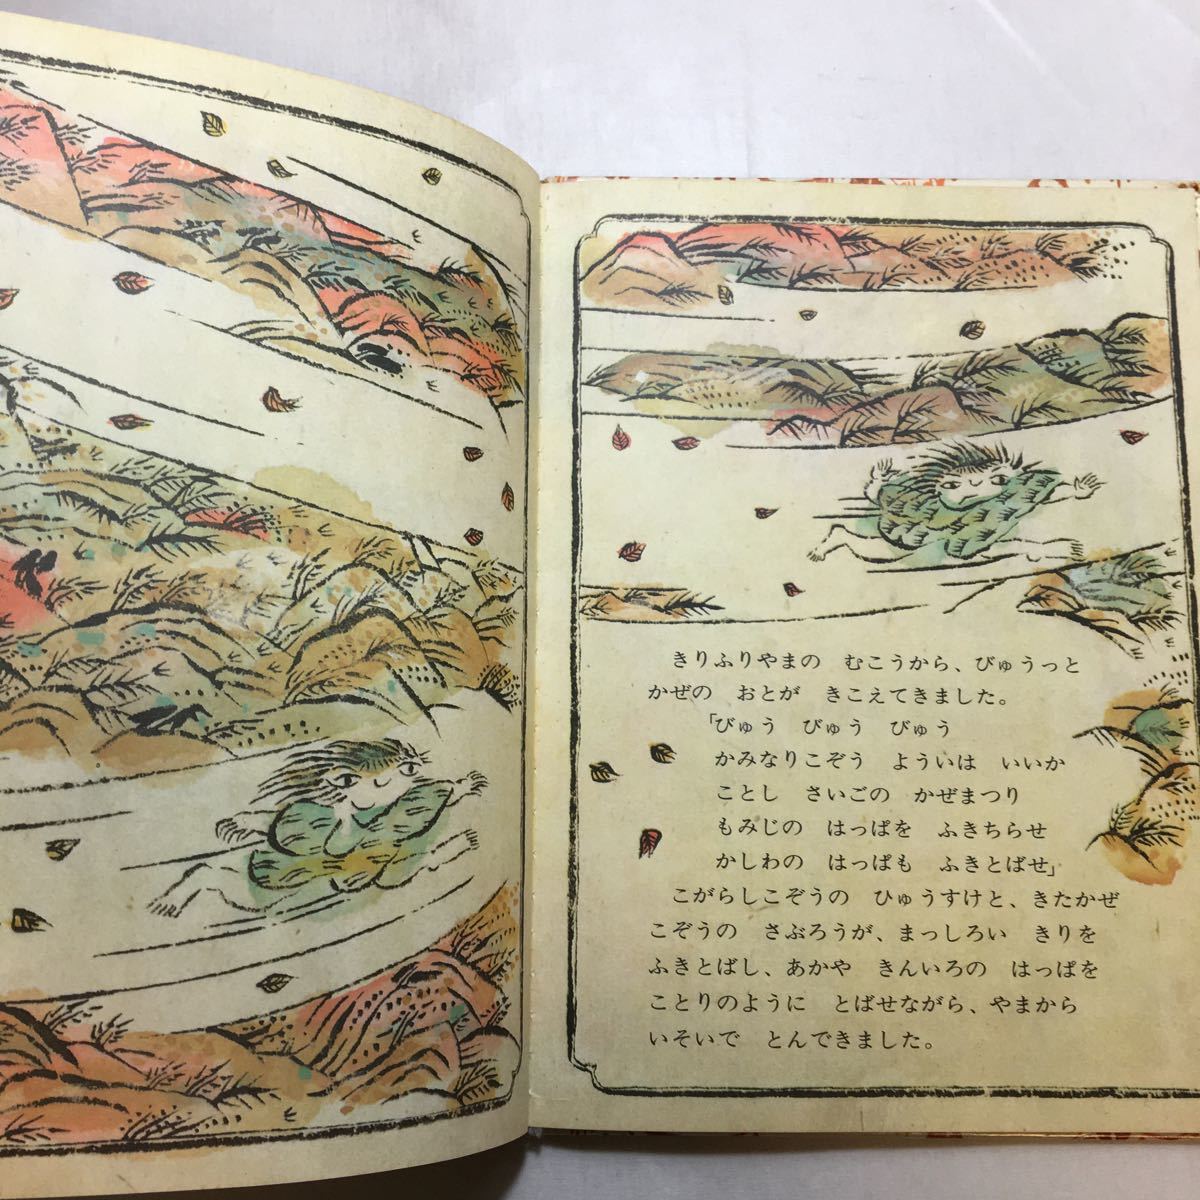 きりふりやまの　むこうから、びゅうっと
かぜの　おとが　きこえてきました。
「びゅう　びゅう　びゅう
かみなりこぞう　よういは　いいか
ことし　さいごの　かぜまつり
もみじの　はっぱを　ふきちらせ
かしわの　はっぱも　ふきとばせ」
こがらしこぞうの　ひゅうすけと、きたかぜ
こぞうの　さぶろうが、まっしろい　きりを
ふきとばし、あかや　きんいろの　はっぱを
ことりのように　とばせながら、やまから
いそいで　とんできました。